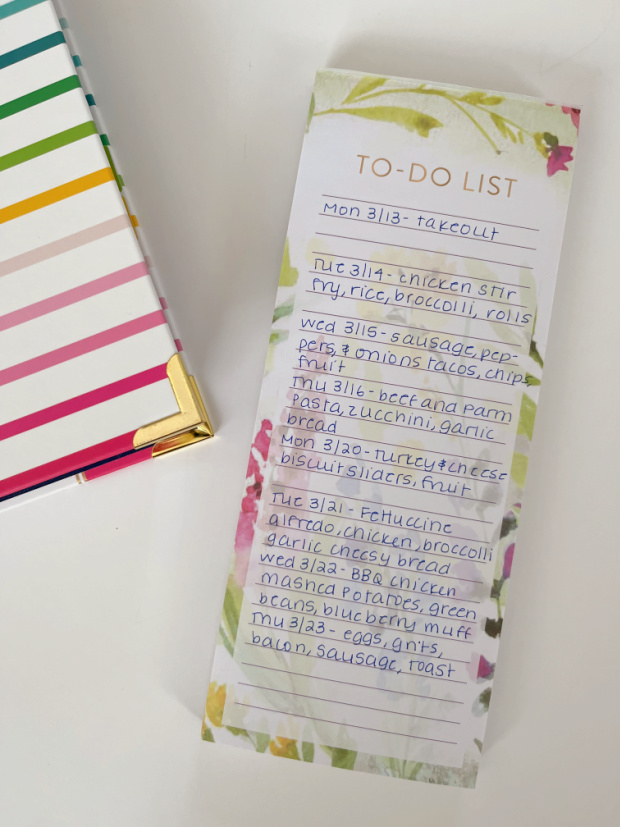 TO-DO LIST
Mon 3/13- takeout
Tue 3/14- chicken stir
fry, rice, broccolli, rolls
Wed 3/15- sausage, pep-
pers, & onions tacos, chips
fruit
Thu 3/16- beef and parm
pasta, zucchini, garlic
bread
Mon 3/20- Turkey & cheese
biscuit sliders, fruit
Tue 3/21- Fettuccine
alfredo, chicken, broccolli
garlic cheesy bread
Wed 3/22- BBQ chicken
mashed potatoes, green
beans, blueberry muff
Thu 3/23- eggs, grits,
bacon, sausage, toast